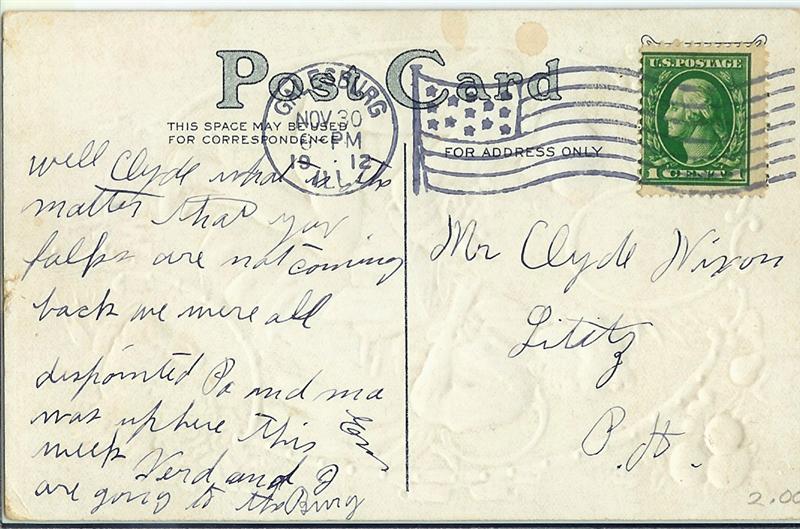 Post Card
GALESBURG
NOV 30
PM
19 12
ILL.
U.S. POSTAGE
1 CENT 1
THIS SPACE MAY BE USED
FOR CORRESPONDENCE
FOR ADDRESS ONLY
well Clyde what is the
matter that your
folks are not coming
back we were all
dispointed Pa and ma
was up here this
week Verd and I
are going to the Burg
Mr Clyde Nixon
Lititz
P.
2.00